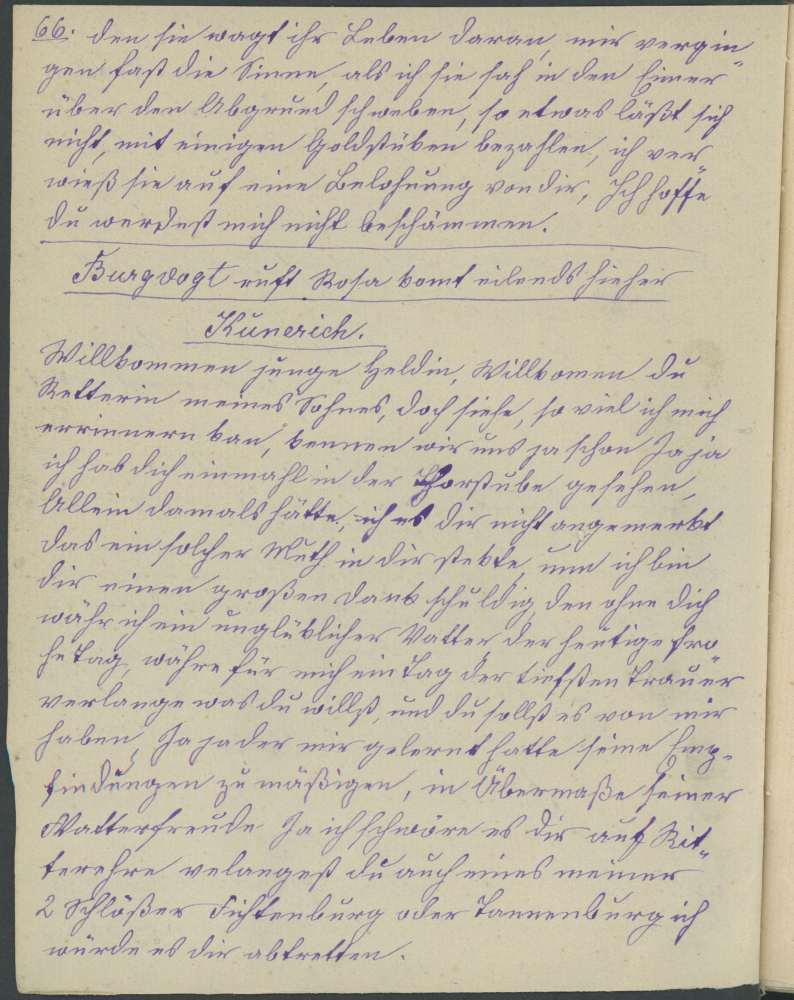 66. den sie wagt ihr Leben daran, mir vergin„
gen fast die Sinne, als ich sie sah in den Eimer
über den Abgrund schweben, so etwas läßt sich
nicht, mit einigen Goldstüken bezahlen, ich ver„
wieß sie auf eine Belohnung von dir, Ich hoffe
du werdest mich nicht beschämmen.
Burgvogt ruft Rosa komt eilends hieher
Kunerich.
Willkommen junge Heldin, Willkomen du
Retterin meines Sohnes, doch siehe, so viel ich mich
errinnern kan, kennen wir uns ja schon Ja ja
ich hab dich einmahl in der Thorstube gesehen,
Allein damals hätte, ich es dir nicht angemerkt
das ein solcher Muth in dir stekte, nun ich bin
dir einen großen Dank schuldig, den ohne dich
währ ich ein unglüklicher Vatter, der heutige fro„
he Tag, währe für mich ein Tag der tiefsten Trauer
verlange was du willst, und du sollst es von mir
haben, Ja ja der nie gelernt hatte seine Emp„
findungen zu mäßigen, in Übermaße seiner
Vatterfreude Ja ich schwöre es dir auf Rit„
terehre velangest du auch eines meiner
2 Schlößer Fichtenburg oder Tannenburg ich
würde es dir abtretten.